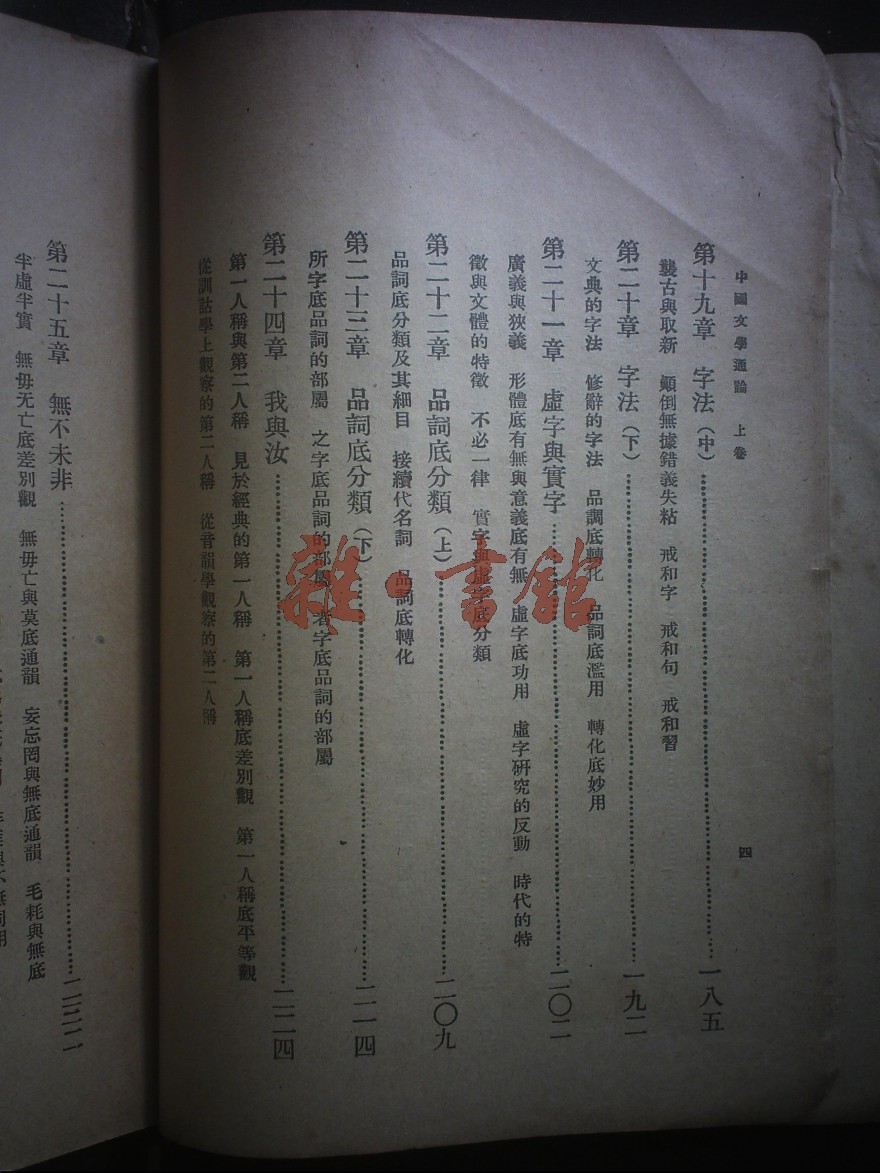 中國文學通論　上卷
四
第十九章　字法（中）……一八五
襲古與取新　顚倒無據錯義失粘　戒和字　戒和句　戒和習
第二十章　字法（下）……一九二
文典的字法　修辭的字法　品詞底轉化　品詞底濫用　轉化底妙用
第二十一章　虛字與實字……二〇二
廣義與狹義　形體底有無與意義底有無　虛字底功用　虛字硏究的反動　時代的特
徵與文體的特徵　不必一律　實字與虛字底分類
第二十二章　品詞底分類（上）……二〇九
品詞底分類及其細目　接續代名詞　品詞底轉化
第二十三章　品詞底分類（下）……二一四
所字底品詞的部屬　之字底品詞的部屬　者字底品詞的部屬
第二十四章　我與汝……二二四
第一人稱與第二人稱　見於經典的第一人稱　第一人稱底差別觀　第一人稱底平等觀
從訓詁學上觀察的第二人稱　從音韻學觀察的第二人稱
第二十五章　無不未非……二三二
半虛半實　無毋无亡底差別觀　無毋亡與莫底通韻　妄忘罔與無底通韻　毛耗與無底
雜·書館